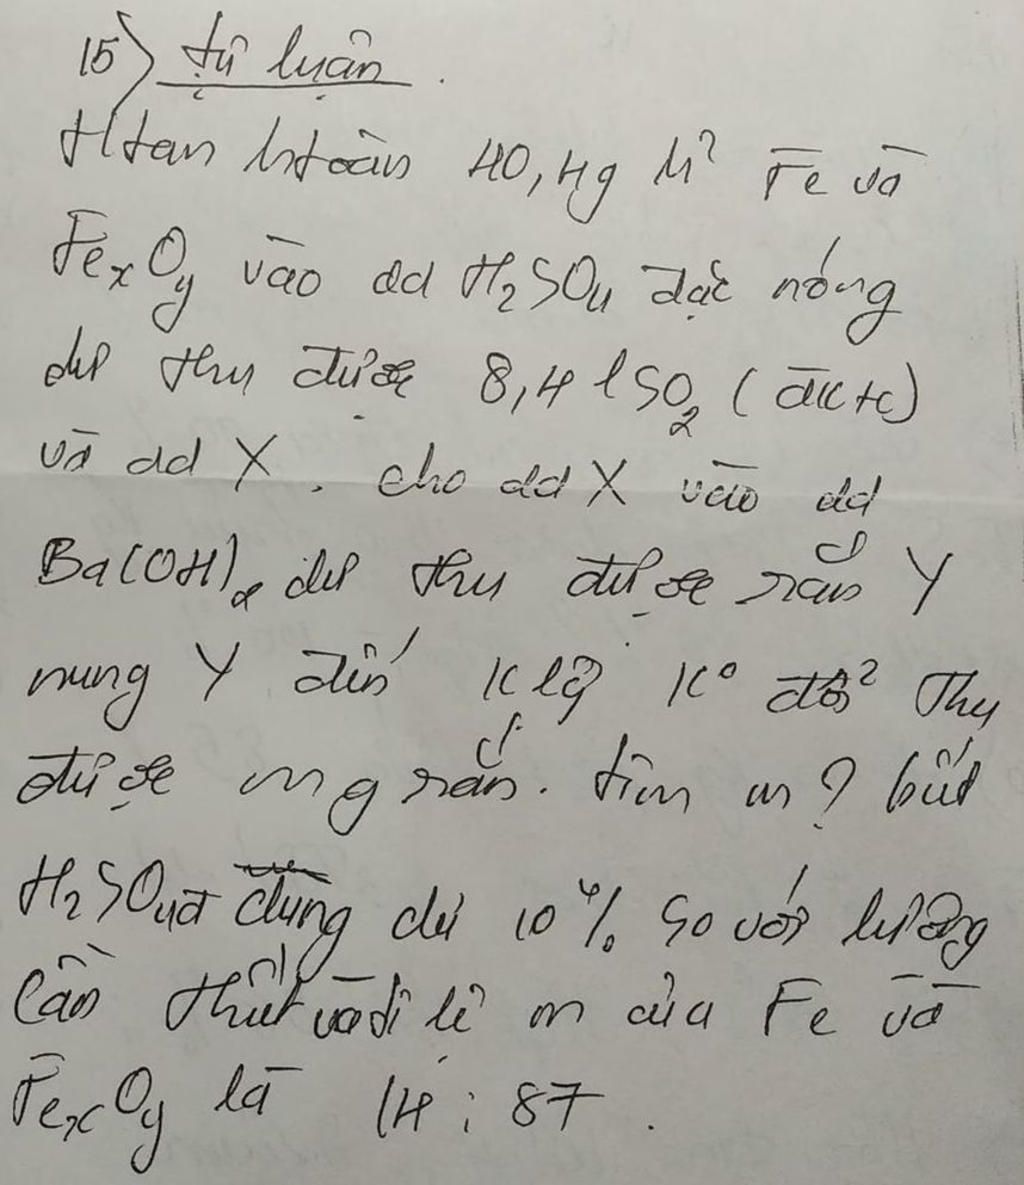 15) tự luận.
Htan htoàn 40,4g h² Fe và
FexOy vào dd H2SO4 đặc nóng
dư thu được 8,4 l SO2 (đktc)
và dd X. cho dd X vào dd
Ba(OH)2 dư thu được rắn Y
nung Y đến k lg k° đổi thu
được m g rắn. tìm m? biết
H2SO4 đ dùng dư 10% so với lượng
cần thiết và tỉ lệ m của Fe và
FexOy là 14:87.